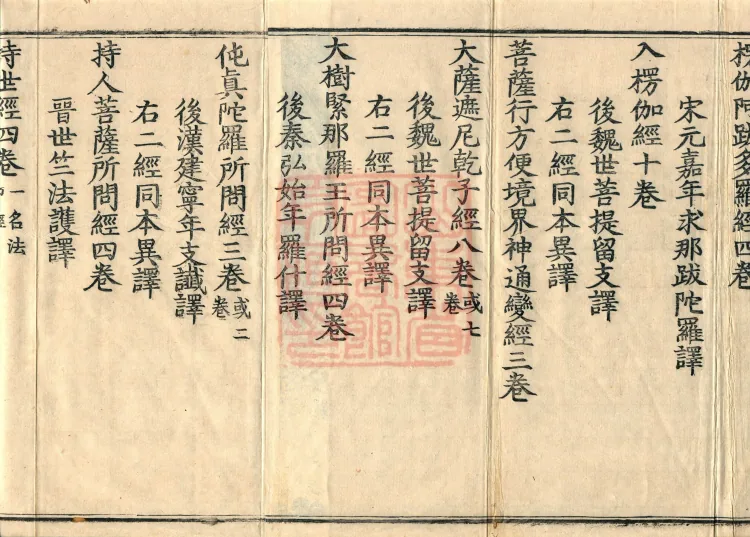 楞伽阿跋多羅經四卷
宋元嘉年求那跋陀羅譯
入楞伽經十卷
後魏世菩提留支譯
右二經同本異譯
菩薩行方便境界神通變經三卷
大薩遮尼乾子經八卷或七卷
後魏世菩提留支譯
右二經同本異譯
大樹緊那羅王所問經四卷
後秦弘始年羅什譯
伅眞陀羅所問經三卷或二卷
後漢建寧年支讖譯
右二經同本異譯
持人菩薩所問經四卷
晉世竺法護譯
持世經四卷一名法